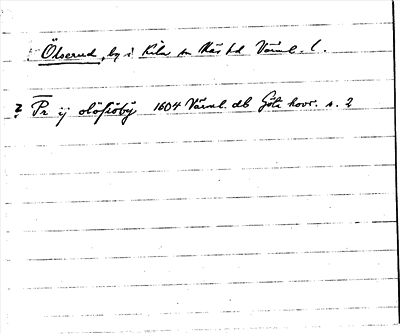 Ölserud, by i Kila sn Näs hd Värml. l.
? Pr ij olößröby 1604 Värml. db Göta hovr. s. 2